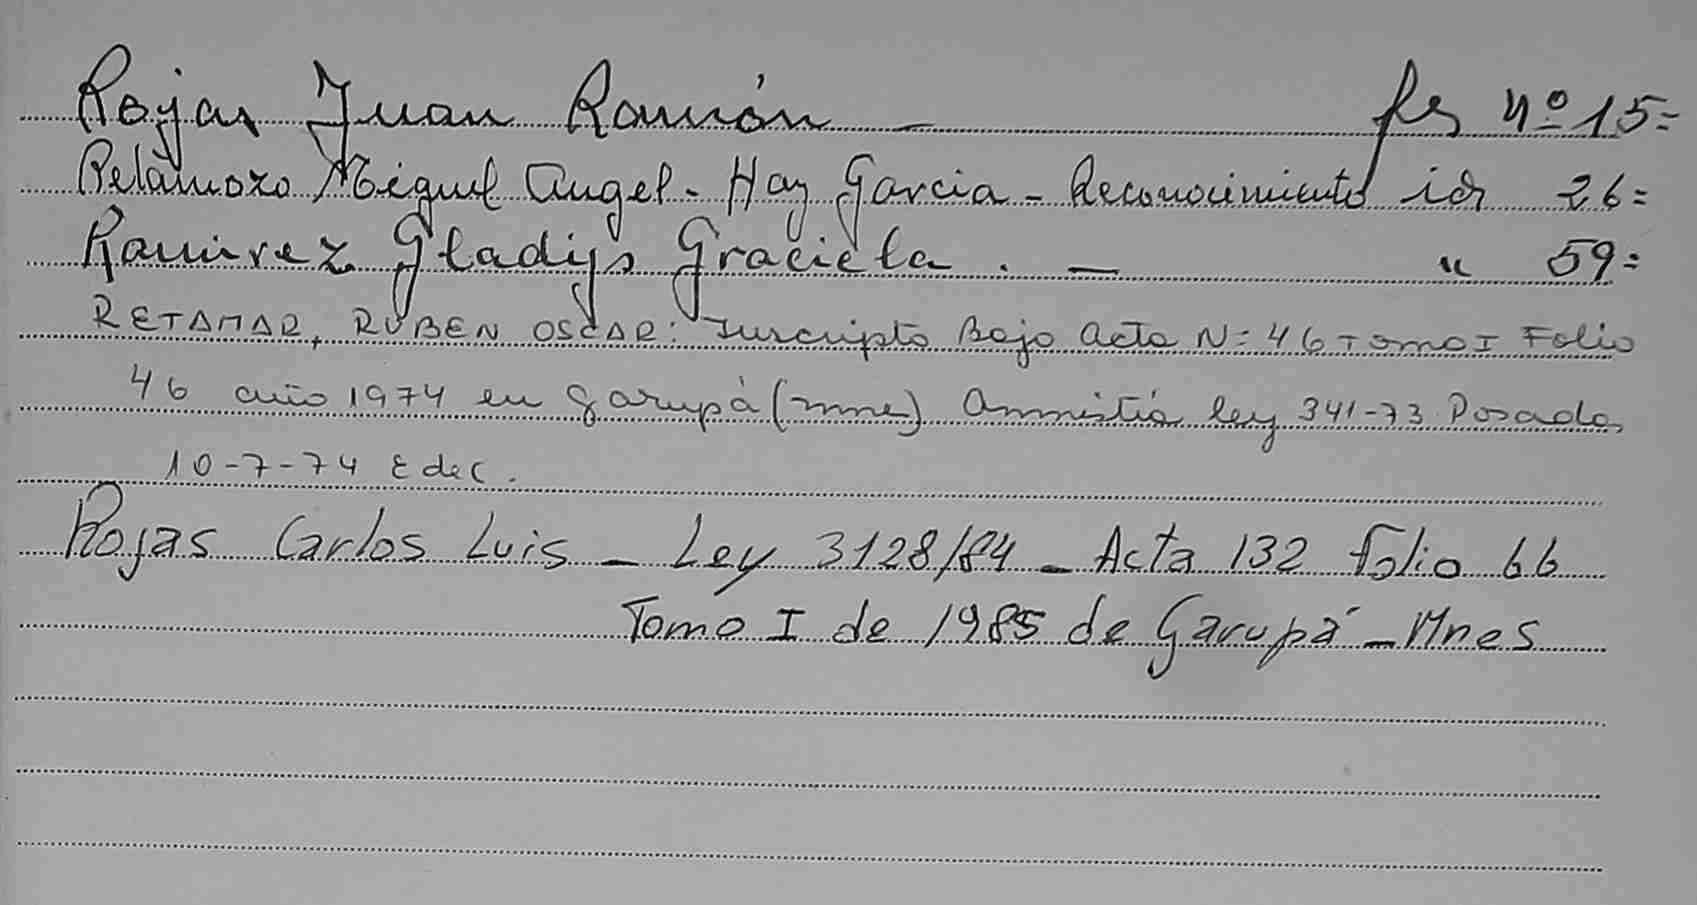 Rojas Juan Ramón — fs Nº 15=
Retamozo Miguel Angel - Hay Garcia - Reconocimiento id 26=
Ramirez Gladys Graciela . — " 59=
RETAMAR, RUBEN OSCAR: Inscripto Bajo acta N= 46 Tomo I Folio
46 año 1974 en Garupá (mnes) Amnistía ley 341-73 Posadas
10-7-74 E dec.
Rojas Carlos Luis - Ley 3128/84 - Acta 132 folio 66
Tomo I de 1985 de Garupá - Mnes